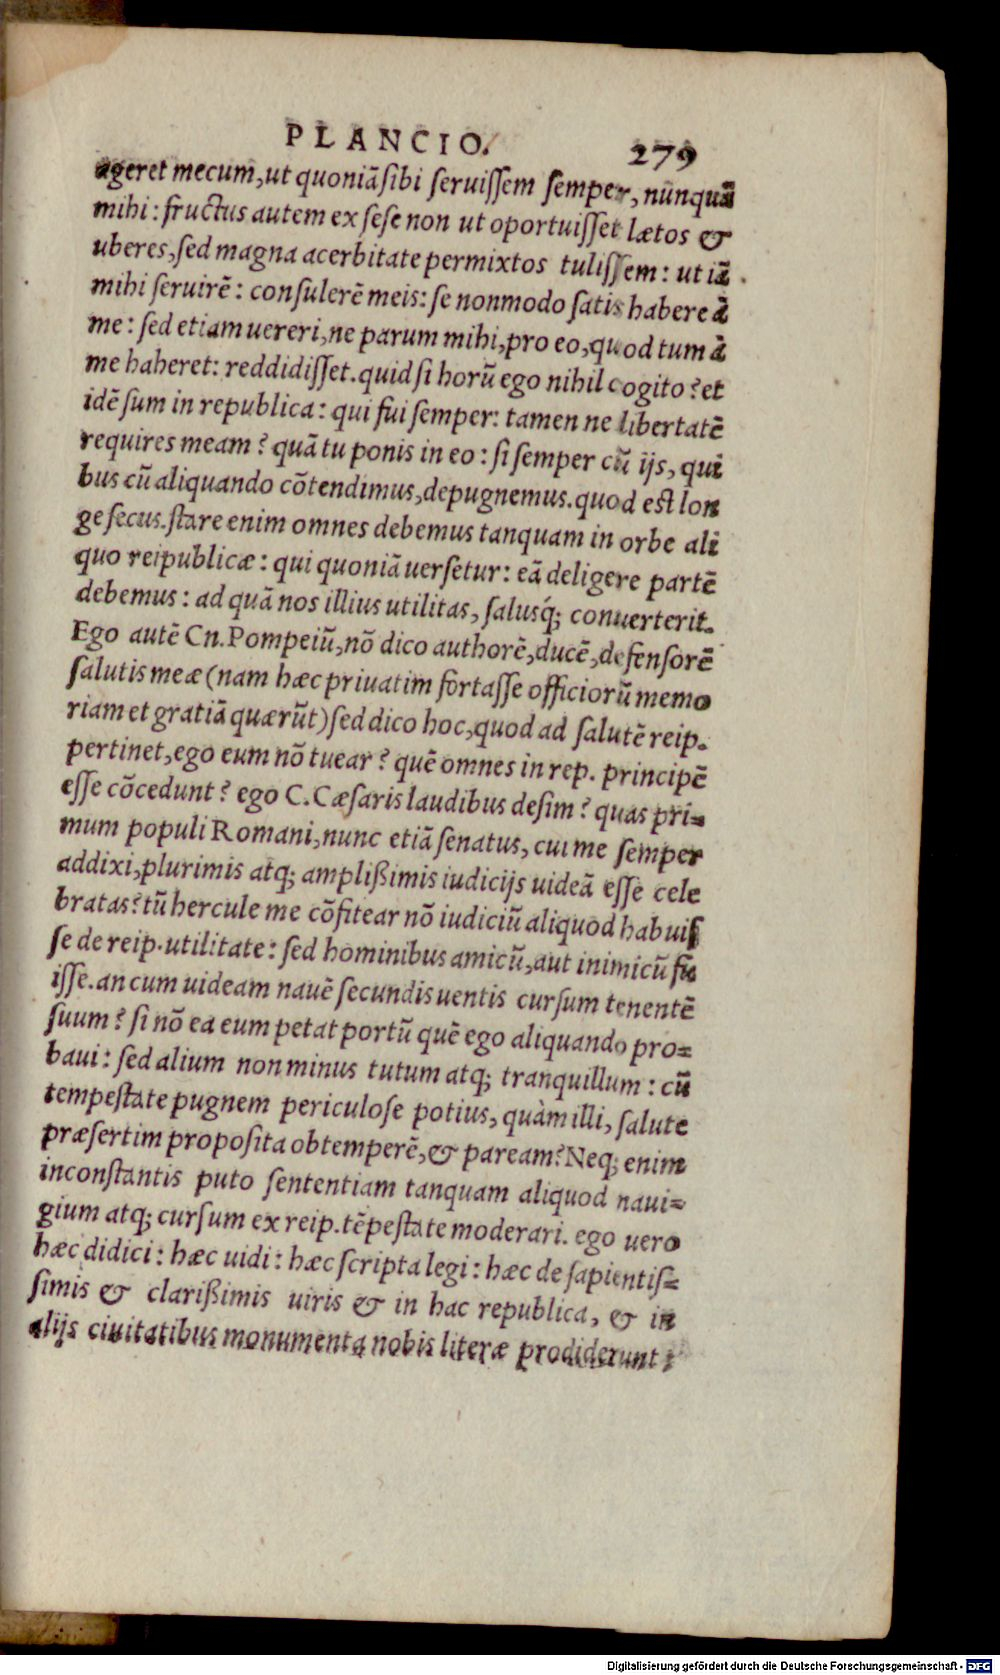 PLANCIO. 279
ageret mecum, ut quoniā sibi seruissem semper, nunquā
mihi: fructus autem ex sese non ut oportuisset lætos &
uberes, sed magna acerbitate permixtos tulissem: ut iā
mihi seruirē: consulerē meis: se nonmodo satis habere à
me: sed etiam uereri, ne parum mihi, pro eo, quod tum à
me haheret: reddidisset. quid si horū ego nihil cogito? et
idē sum in republica: qui fui semper: tamen ne libertatē
requires meam? quā tu ponis in eo: si semper cū ijs, qui
bus cū aliquando cōtendimus, depugnemus. quod est lon
ge secus. stare enim omnes debemus tanquam in orbe ali
quo reipublicæ: qui quoniā uersetur: eā deligere partē
debemus: ad quā nos illius utilitas, salusq́; conuerterit.
Ego autē Cn. Pompeiū, nō dico authorē, ducē, defensorē
salutis meæ (nam hæc priuatim fortasse officiorū memo
riam et gratiā quærūt) sed dico hoc, quod ad salutē reip.
pertinet, ego eum nō tuear? quē omnes in rep. principē
esse cōcedunt? ego C. Cæsaris laudibus desim? quas pri-
mum populi Romani, nunc etiā senatus, cui me semper
addixi, plurimis atq; amplißimis iudicijs uideā esse cele
bratas? tū hercule me cōfitear nō iudiciū aliquod habuis
se de reip. utilitate: sed hominibus amicū, aut inimicū fu
isse. an cum uideam nauē secundis uentis cursum tenentē
suum? si nō ea eum petat portū quē ego aliquando pro-
baui: sed alium non minus tutum atq; tranquillum: cū
tempestate pugnem periculose potius, quàm illi, salute
præsertim proposita obtemperē, & paream? Neq; enim
inconstantis puto sententiam tanquam aliquod naui-
gium atq; cursum ex reip. tēpestate moderari. ego uero
hæc didici: hæc uidi: hæc scripta legi: hæc de sapientis-
simis & clarißimis uiris & in hac republica, & in
alijs ciuitatibus monumenta nobis literæ prodiderunt:
Digitalisierung gefördert durch die Deutsche Forschungsgemeinschaft - DFG